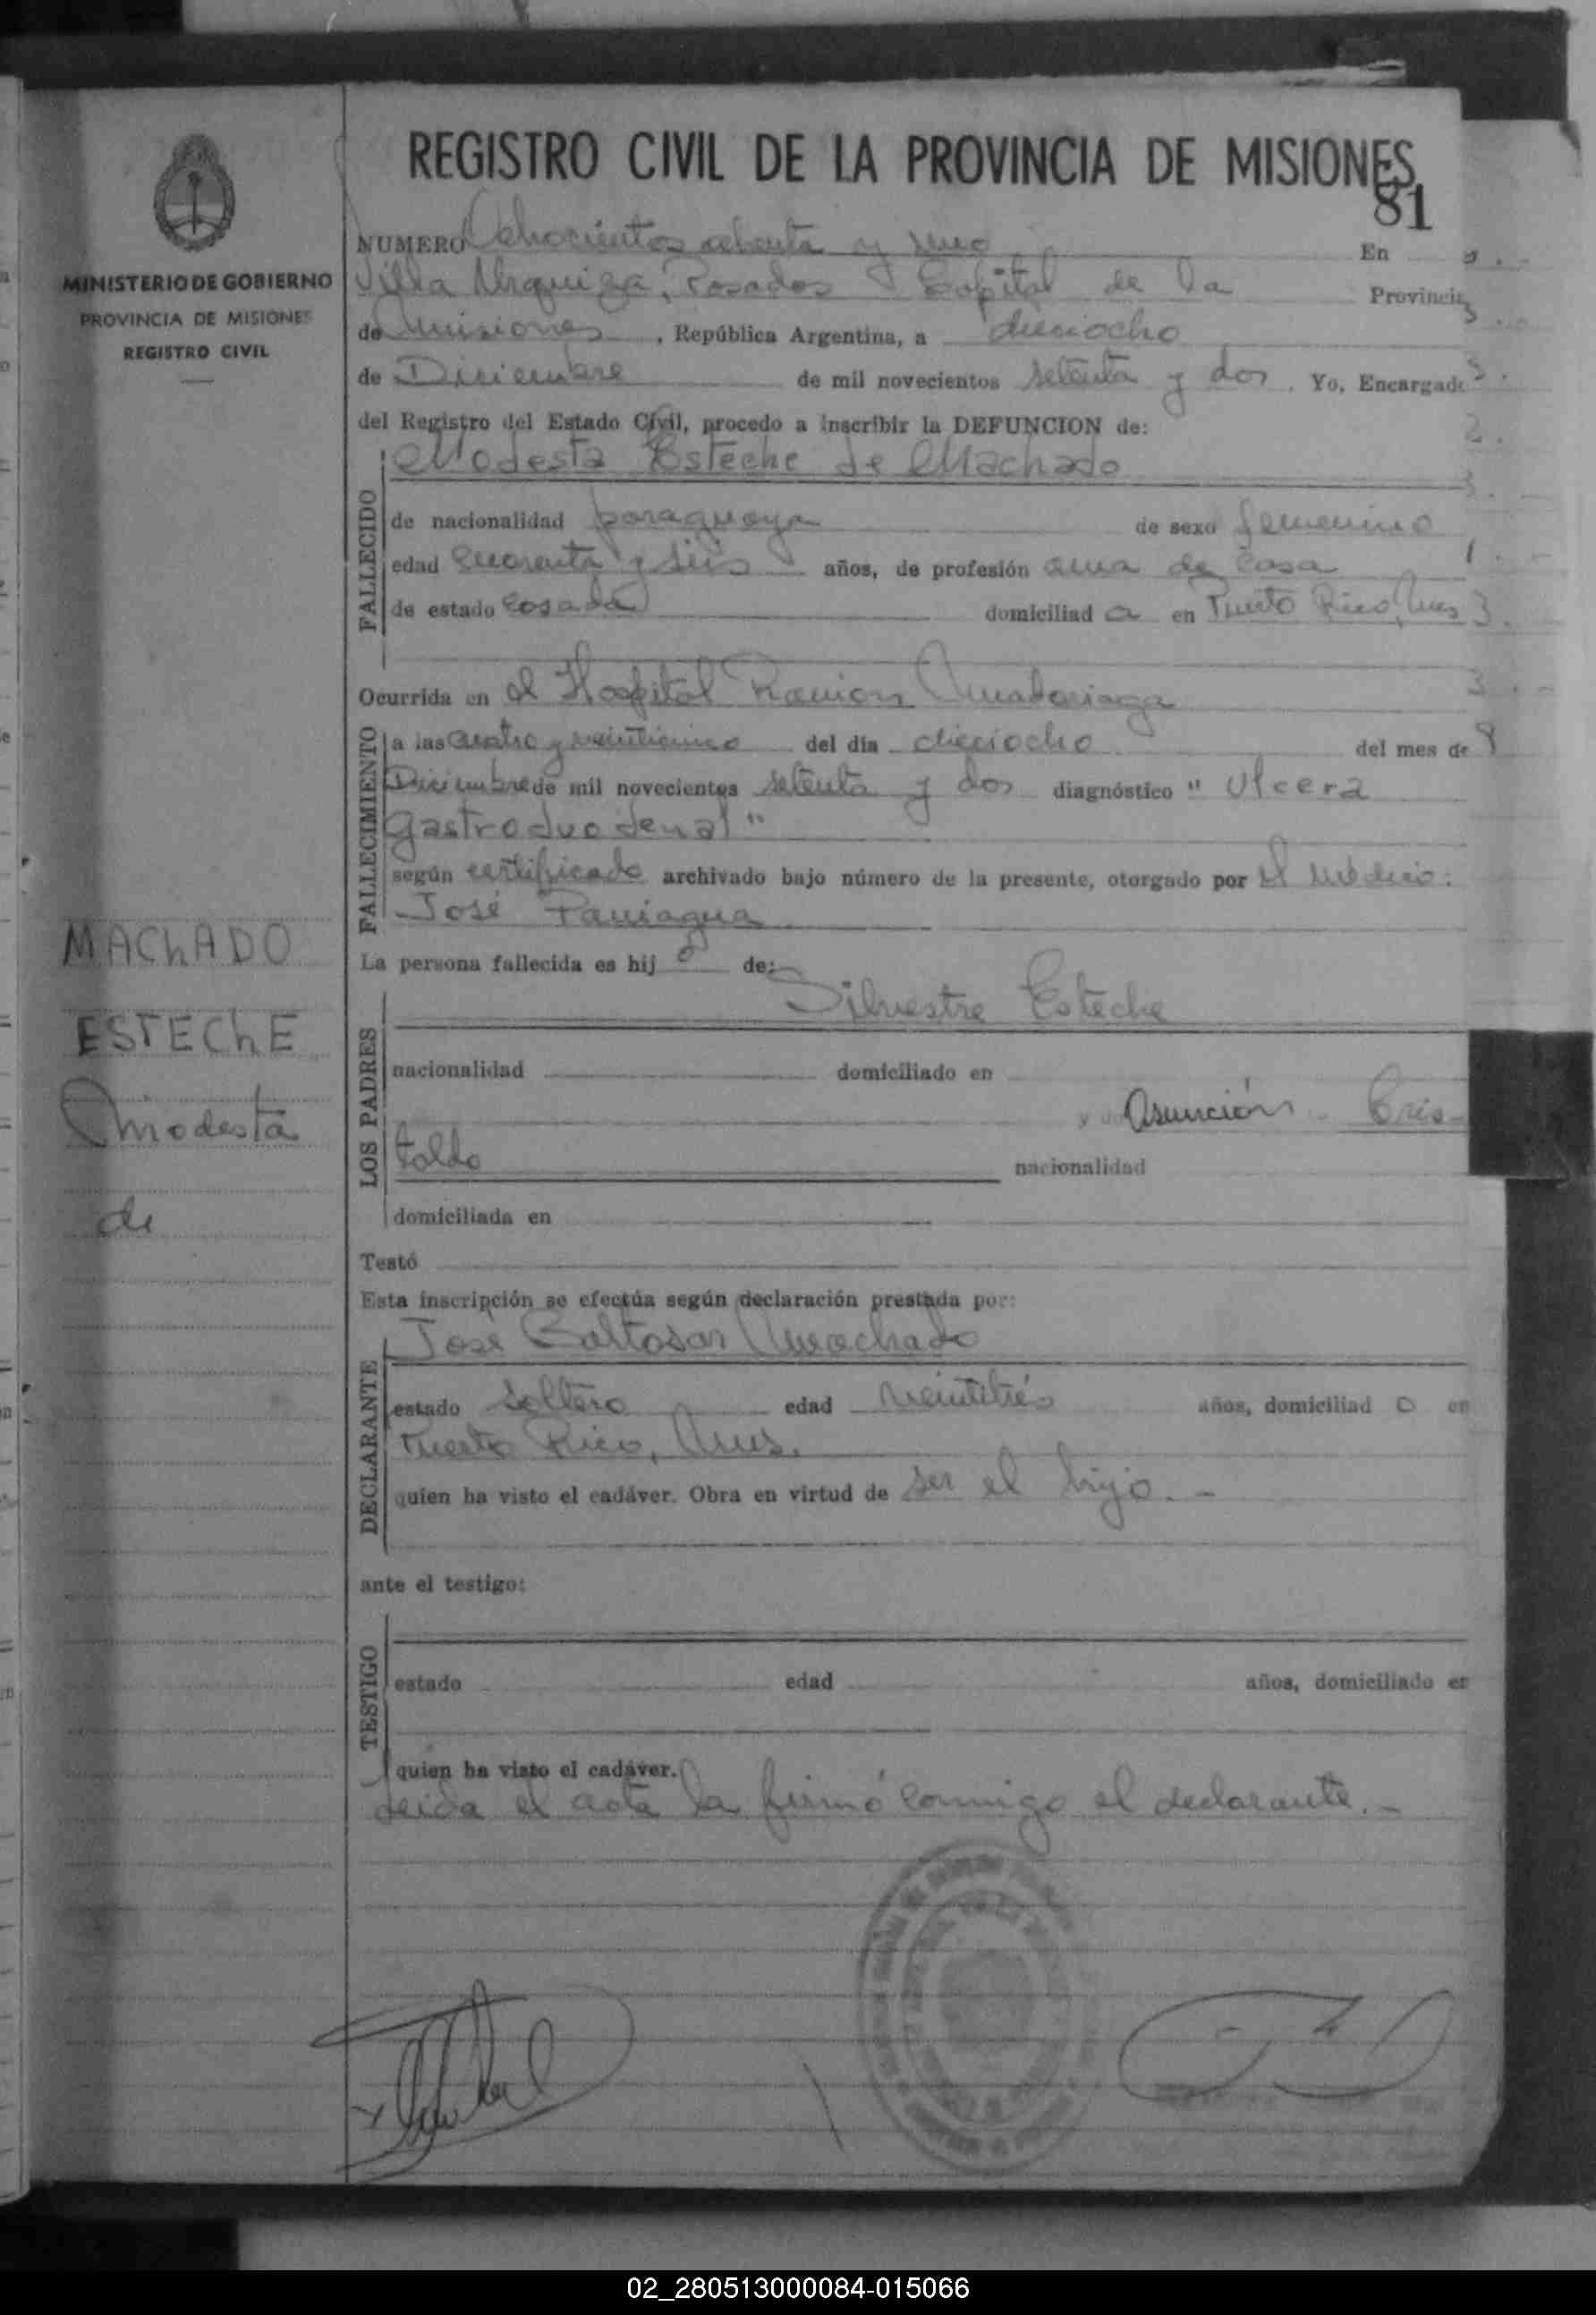 REGISTRO CIVIL DE LA PROVINCIA DE MISIONES
81
MINISTERIO DE GOBIERNO
PROVINCIA DE MISIONES
REGISTRO CIVIL
NUMERO Ochocientos ochenta y uno En
Villa Urquiza, Posadas Capital de la Provincia
de Misiones, República Argentina, a dieciocho
de Diciembre de mil novecientos setenta y dos. Yo, Encargado
del Registro del Estado Civil, procedo a inscribir la DEFUNCION de:
Modesta Esteche de Machado
FALLECIDO
de nacionalidad paraguaya de sexo femenino
edad cuarenta y seis años, de profesión ama de casa
de estado casada domiciliad a en Puerto Rico, Mnes
Ocurrida en el Hospital Ramon Madariaga
FALLECIMIENTO
a las cuatro y veinticinco del día dieciocho del mes de
Diciembre de mil novecientos setenta y dos diagnóstico " Ulcera
gastroduodenal"
según certificado archivado bajo número de la presente, otorgado por el médico:
José Paniagua
La persona fallecida es hij a de:
Silvestre Esteche
LOS PADRES
nacionalidad domiciliado en
y Asunción Cris-
taldo nacionalidad
domiciliada en
Testó
Esta inscripción se efectúa según declaración prestada por:
José Baltasar Machado
DECLARANTE
estado soltero edad veintitrés años, domiciliad o en
Puerto Rico, Mnes.
quien ha visto el cadáver. Obra en virtud de ser el hijo.-
ante el testigo:
TESTIGO
estado edad años, domiciliado en
quien ha visto el cadáver.
Leida el acta la firmó conmigo el declarante.-
MAChADO
ESTEChE
Modesta
de
02_280513000084-015066